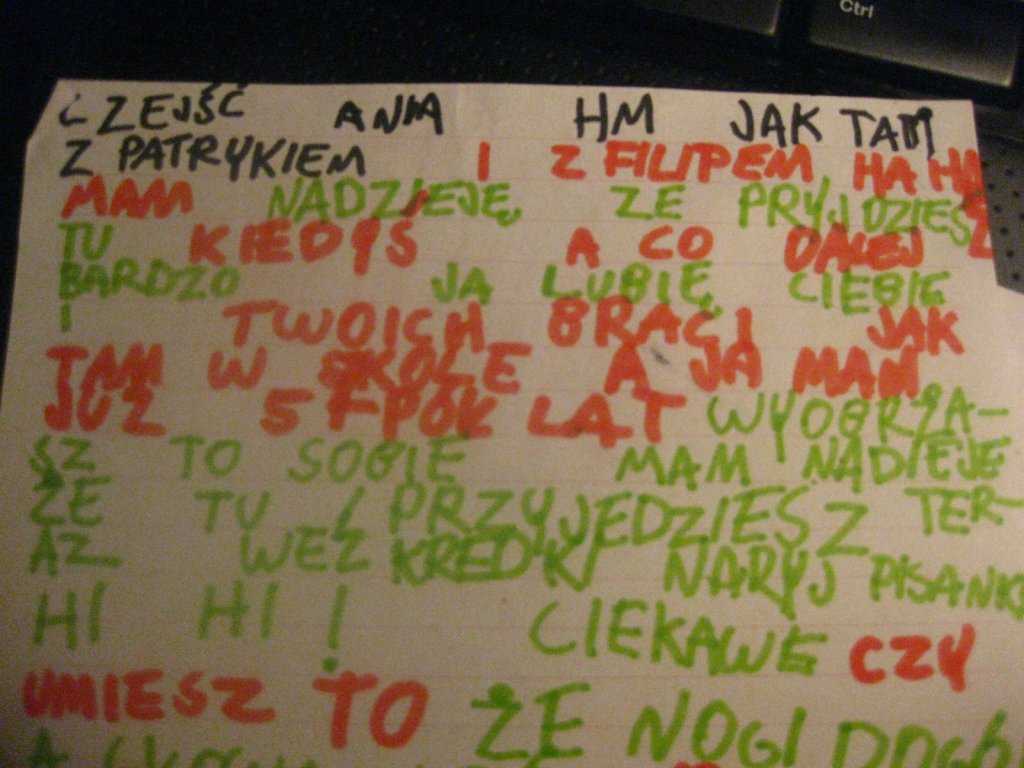 Ctrl
CZEJŚĆ ANIA HM JAK TAM
Z PATRYKIEM I Z FILIPEM HA HA
MAM NADZIEJĘ, ZE PRYJDZIES Z
TU KIEDYŚ A CO DALEJ
BARDZO JA LUBIĘ CIEBIE
I TWOICH BRACI JAK
TAM W SKOLE A JA MAM
JUZ 5 I PÓŁ LAT WYOBRZA-
SZ TO SOBIE MAM NADIEJE
ŻE TU PRZYJEDZIESZ TER-
AZ WEZ KREDKI NARYJ PISANKĘ
HI HI ! CIEKAWE CZY
UMIESZ TO ŻE NOGI DOGÓ